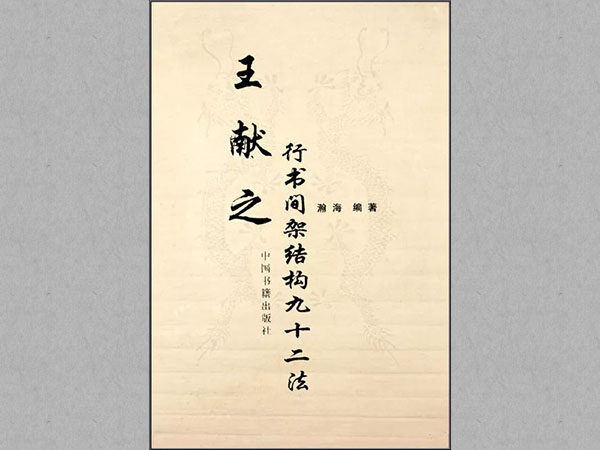 王献之
行书间架结构九十二法
瀚海 编著
中国书籍出版社